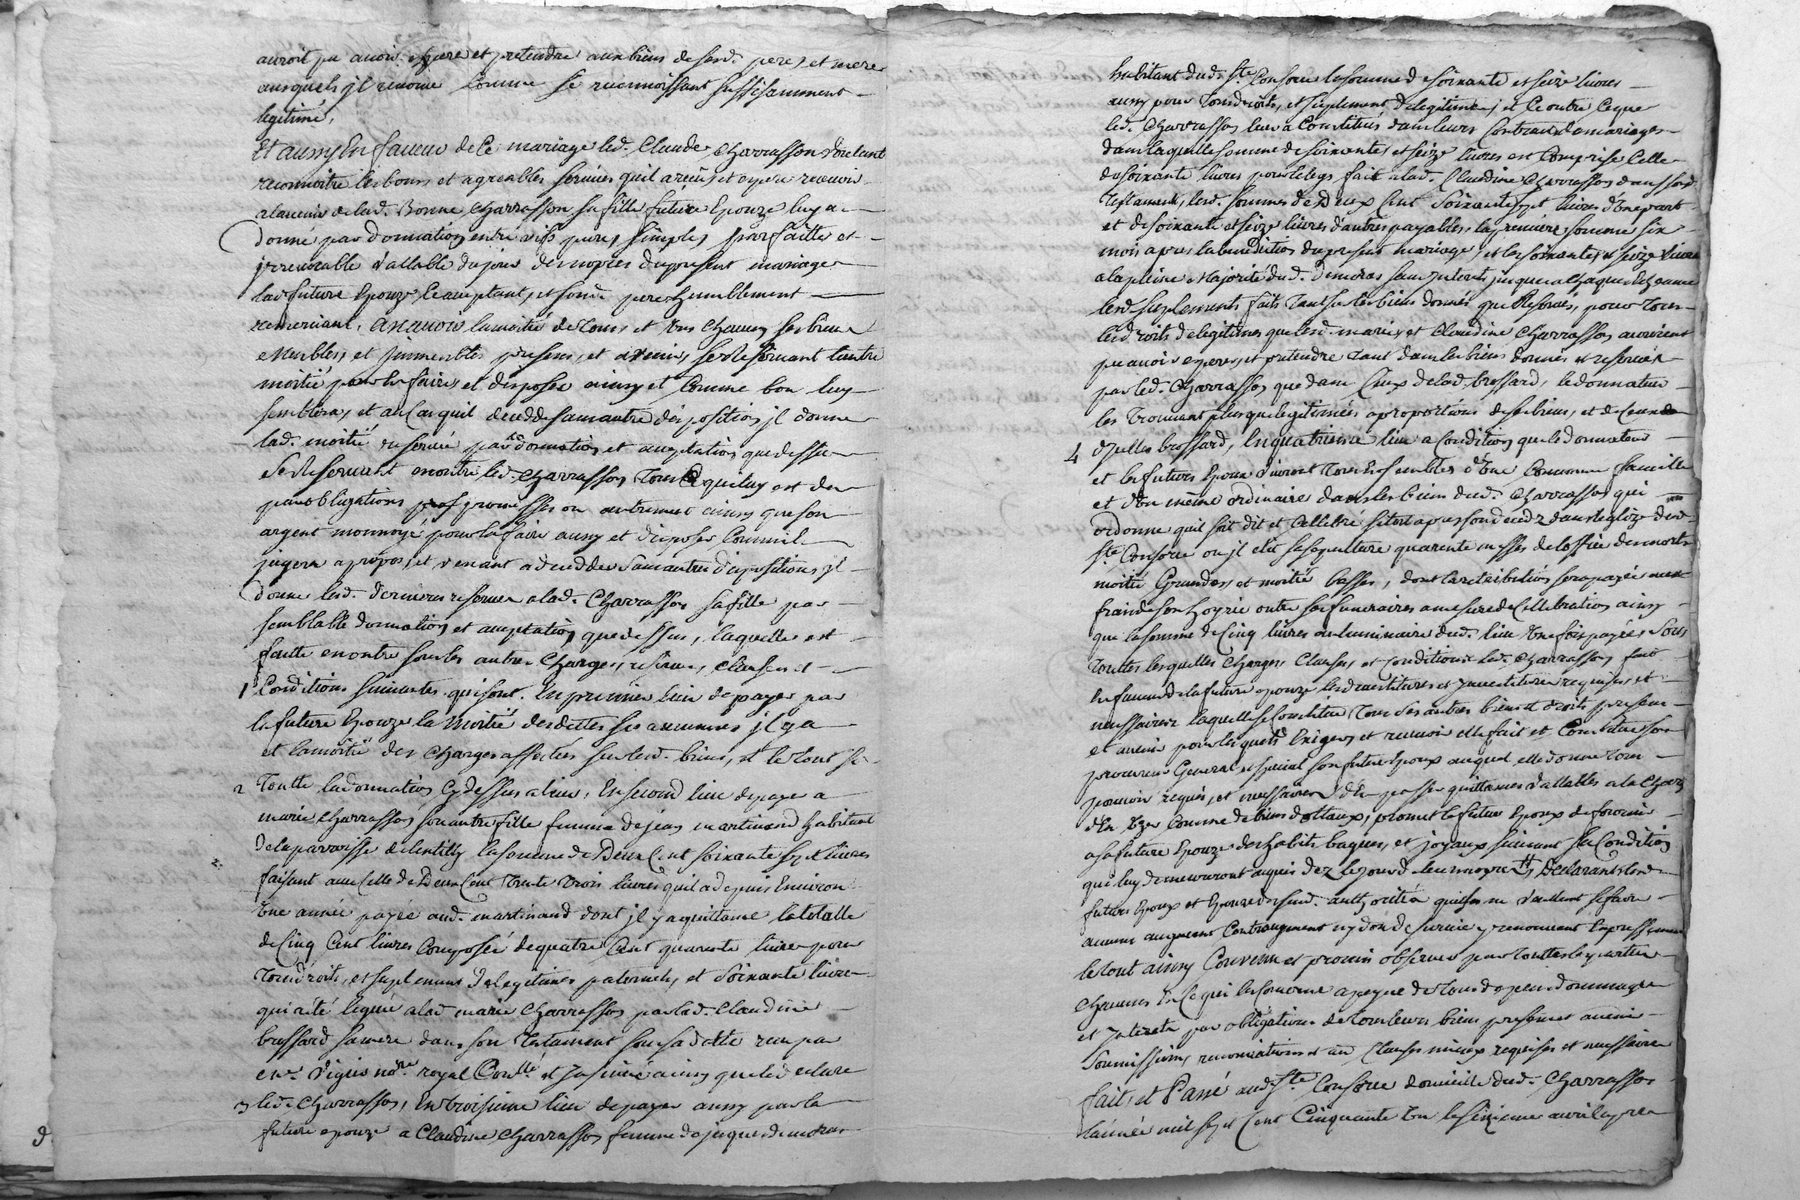 auroit pu avoir espere et pretendre aux biens de sesd. pere et mere
ausquels il renonce comme se reconnoissant suffisamment
legitimé,
Et aussy En faveur de Ce mariage led. Claude Charrasson voulant
reconnoitre les bons et agreables services quil a reçus et espere recevoir
alavenir delad. Bonne Charrasson sa fille future Epouze luy a
donné par donnation entre vifs pure, simple, parfaitte et
irrevocable vallable du jour des nopces du present mariage
lad. future Epouze lacceptant, et sond. pere humblement
remerciant, a scavoir la moitié de tous et uns chacuns ses biens
meubles, et immeubles presens, et avenir, se reservant lautre
moitié pour en faire et disposer ainsy et Comme bon luy
semblera, et au Cas quil decedde sans autre disposition, il donne
lad. moitié reservée par donnation, et acceptation que dessus
Se Reservant enoutre led. Charrasson tout Ce quiluy est deu
par obligations promesses ou autrement ainsy que son
argent monnoyé pour en faire aussy et disposer Comme il
jugera a propos, et venant a decedder sans autre dispositions il
donne lesd. derniers reserves alad. Charrasson sa fille par
semblable donnation, et acceptation que dessus, laquelle est
faitte enoutre sous les autres Charges, reserves, clauses et
1 Conditions suivantes quisont. En premier lieu de payer par
la future Epouze la moitié desdettes si aucunes il y a
et la moitié des charges affectées sur lesd. biens, et le tout si
2 Toutte la donnation Cy dessus a lieu, En second lieu de payer a
marie Charrasson son autre fille femme de jean martinand habitant
de la parroisse de lentilly la somme de Deux Cent soixante sept livres
faisant avec Celle de Deux Cent trente trois livres quil a depuis Environ
Une année payée aud. martinand dont il y a quittance la totalle
de Cinq Cent livres Composée de quatre Cent quarante livres pour
tous droits, et suplement de legitimes paternels, et soixante livres
qui a eté leguée alad. marie Charrasson par lad. Claudine
brossard sa mere dans son testament sous sa datte reçu par
me. Vigis nore. royal et insinué ainsy que led. declare
3 led. Charrasson, En troisieme lieu de payer aussy par la
future epouze a Claudine Charrasson femme de jacques demoras
habitant dud. Ste. Consorce la somme de soixante et seize livres
aussy pour tous droits, et suplement de legitime, et Ce outre Ceque
led. Charrasson leur a Constitué dans leurs Contrats de mariage
dans laquelle somme de soixante et seize livres est Comprise Celle
de soixante livres pour le legs fait alad. Claudine Charrasson dans son d.
testament, lesd. sommes de Deux Cent soixante sept livres d'une part
et de soixante et seize livres d'autres payables, la premiere somme six
mois apres la benediction du present mariage, et les soixante et seize livres
a la pleine Majorité dud. demoras sans interets jusques a chaque Echeance
lesd. suplements faits tant sur les biens donnés que Reservés, pour tous
les droits de legitimes que lesd. marie, et Claudine Charrasson auroient
pu avoir esperer, et pretendre tant dans les biens donnés et reservés
par led. Charrasson, que dans Ceux de lad. brossard, le donnateur
les trouvant plus que legitimées a proportions de ses biens, et de Ceux de
4 d'jcelle brossard, En quatrieme lieu a Condition que le donnateur
et les futurs Epoux vivront tous Ensembles d'une Commune famille
et d'un même ordinaire dans les biens dud. Charrasson qui
ordonne quil soit dit et Cellebré sitost apres son decedz dans leglize dud.
Ste. Consorce ou il elit sa sepulture quarente messes de loffice des morts
moitié Grandes, et moitié basses, dont la retribution sera payée aux
frais de son hoyrie outre ses funeraires a mesure de Cellebration ainsy
que la somme de Cinq livres au luminaire dud. lieu Une fois payée, Sous
touttes lesquelles Charges, Clauses, et Conditions led. Charrasson, fait
En faveur de la future epouze les devestitures et investitures requises, et
necessaires laquelle se Constitue tous ses autres biens et droits presens
et avenir pour lesquels Exiger, et recevoir elle fait et Constitue son
procureur General et special son future Epoux auquel elle donne tous
pouvoir requis, et necessaires d'En passer quittances vallables a la charge
d'En Uzer Comme de biens dottaux, promet le future Epoux de fournir
a sa future Epouze des habits bagues, et joyaux suivant sa Condition
que luy demeureront acquis dez le jour de leurs nopces, Declarant lesd.
futurs Epoux et Epouze de leursd. authorités quils ne veullent se faire
aucun augment Contraugment ny don de survie y renoncent Expressement
le tout ainsy Convenu et promis observer par touttes les parties
chacune En Ce qui la Concerne a peyne de tous depens dommages
et jnterets par obligations de tous leurs biens presens et avenir
soumissions, renonciations et aux clauses mieux requises et necessaires
fait, et Passé aud. Ste. Consorce domicille dud. Charrasson
lannée mil sept Cent Cinquante Un le sizieme avril apres